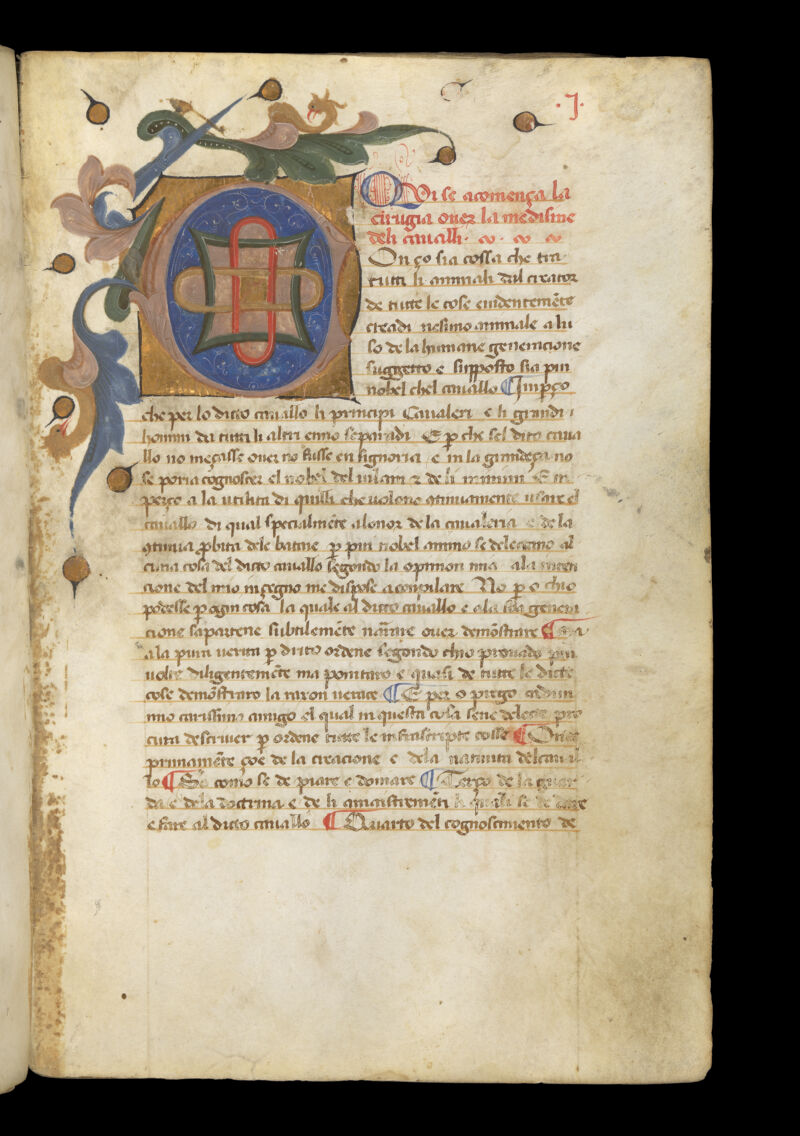 ·J·
QVi se acomença la
cirugia ouer la medisine
deli caualli·
COn ço sia cossa che tra
tutti li animali dal creator
de tutte le cose euidentemẽte
creadi nesuno animale a lu
so de la humane generacione
suggetto e supposto sia piu
nobel chel cauallo ¶ Imꝑço
che per lo ditto cauallo li principi Caualeri e li grandi
homini da tutti li altri enno separadi E ꝑ che sel dito caua
llo no meçasse ouer no fusse en signoria e in la grandeça no
se poria cognoscer el nobel del uilan ⁊ de li
perço a la utilita di quilli che uoleno ꝯtinuamente usare el
cauallo di qual specialmẽte alonor de la caualaria e de la
ꝯtinua ꝓbita dele bataie ꝑ piu nobel animo se delectemo al
cuna cosa del dicto cauallo segondo la opinion mia ala inten
cione del mio inçegno me dispose a compilare No ꝑ o chio
podesse ꝑ ogin cosa la quale al ditto cauallo e a la sua genera
cione sapartene subtilemẽte narrare ouer demõstrare ¶
a la pura uerita ꝑ dirito ordene segondo chio prouado piu
uolte diligentemẽte ma pontaro e quasi de tutte le dicte
cose demõstraro la raxon uerace ¶ E per o prego
mio carissimo amigo el qual in questa cosa sene deleta pro
cura descriuer ꝑ ordene tutte le infrascripte cosse ¶
primamẽte çoe de la creacione e dela natiuita delcaual
lo ¶ So como se de piare e domare ¶ Terço de la guar
da e dela doctrina e de li amaistremẽti li quali se de dare
e fare al dicto cauallo ¶ Quarto del cognoscimento de